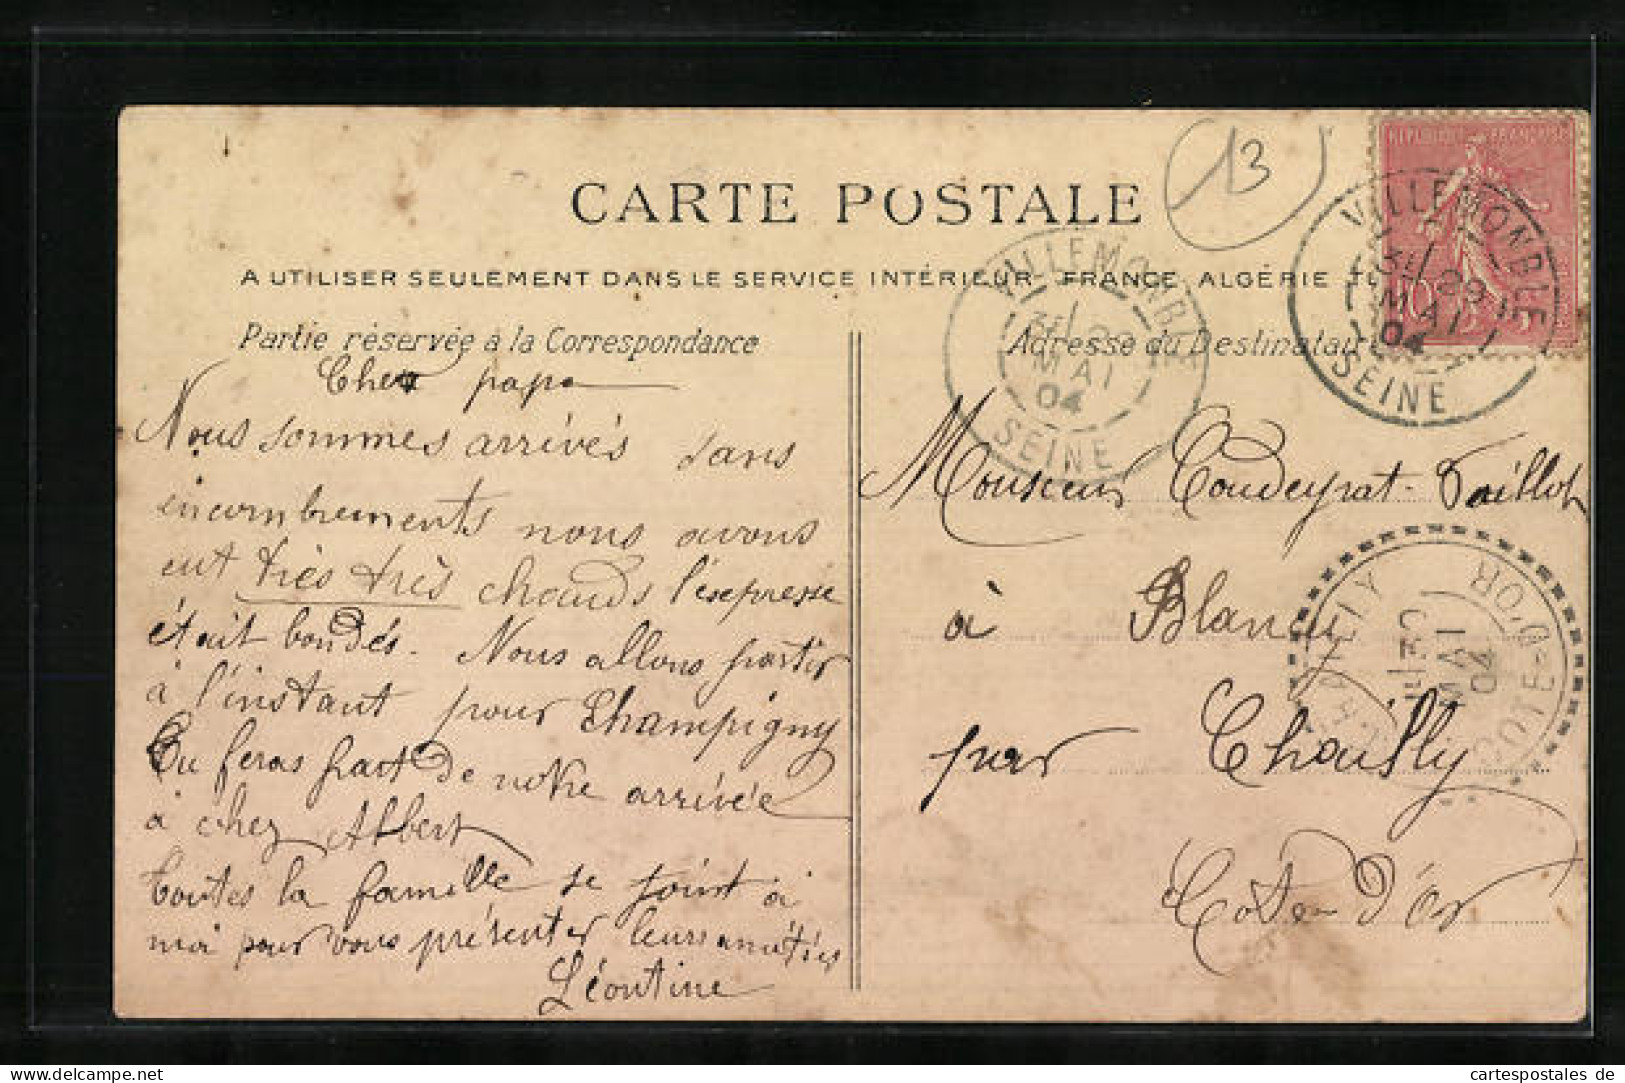 CARTE POSTALE
A UTILISER SEULEMENT DANS LE SERVICE INTÉRIEUR FRANCE ALGÉRIE
Partie réservée à la Correspondance
Adresse du Destinataire
13
RÉPUBLIQUE FRANÇAISE
10
VILLEMONBLE
3E 29
MAI
04
SEINE
VILLEMONBLE
3E 29
MAI
04
SEINE
Cher papa
Nous sommes arrivés sans
incombrements nous avons
eut très très chauds l'expresse
était bondés. Nous allons partir
à l'instant pour Champigny
Tu feras part de notre arrivée
à chez Albert
Toutes la famille se joint à
moi pour vous présenter leurs amitiés
Léontine
Monsieur Coudeyrat-Taillot
à Blancy
par Chailly
Cote d'Or
CHAILLY
MAI
04
COTE-D'OR
cartespostales de
www.delcampe.net